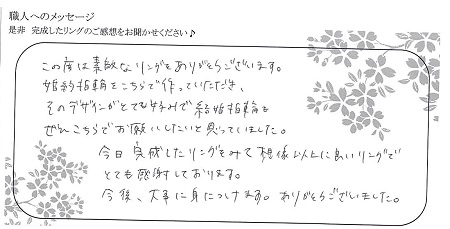 職人へのメッセージ
是非 完成したリングのご感想をお聞かせください♪
この度は素敵なリングをありがとうございます。
婚約指輪をこちらで作っていただき、
そのデザインがとても好みで結婚指輪も
ぜひこちらでお願いしたいと思っていました。
今日完成したリングをみて想像以上に良いリングで
とても感謝しております。
今後、大事に身につけます。ありがとうございました。